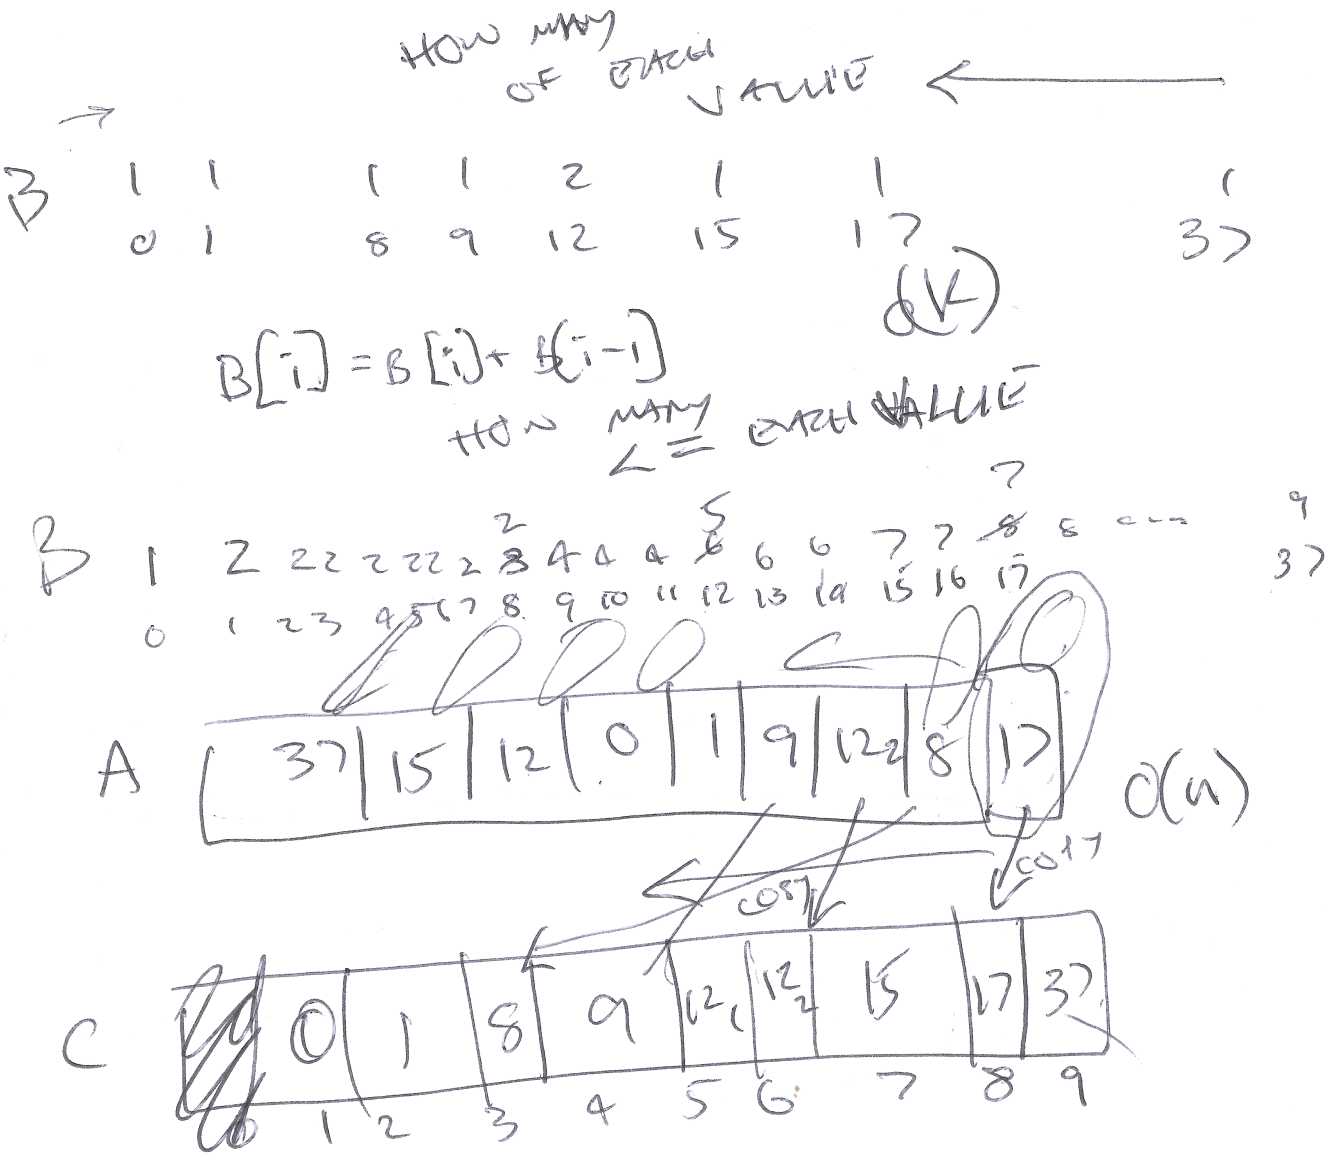 HOW MANY
OF EACH
VALUE
B 1 1 1 1 2 1 1 1
0 1 8 9 12 15 17 37
O(K)
B[i] = B[i] + B[i-1]
HOW MANY EACH VALUE
<=
7
2 5 9
B 1 2 2 2 2 2 2 2 3 4 4 4 6 6 6 7 7 8 8 ---- 37
0 1 2 3 4 5 6 7 8 9 10 11 12 13 14 15 16 17
A 37 15 12 0 1 9 12 2 8 17 O(n)
C 0 1 8 9 12 1 12 2 15 17 37
0 1 2 3 4 5 6 7 8 9